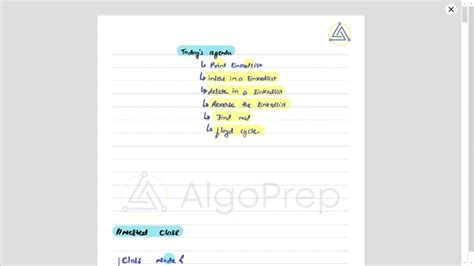 Today's agenda
↳ Print linkedlist
↳ insert in a linkedlist
↳ delete in a linkedlist
↳ Reverse the linkedlist
↳ Find mid
↳ floyd cycle.
AlgoPrep
//Nested Class
class Node {